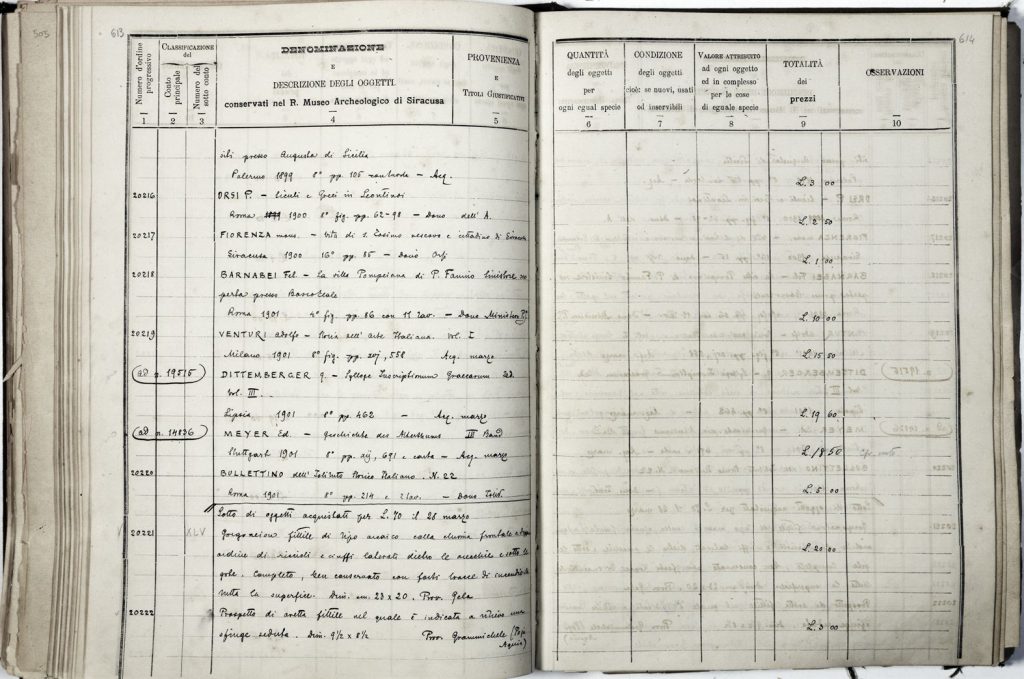 505
613
Numero d'ordine progressivo
CLASSIFICAZIONE del
Conto principale
Numero del sotto conto
DENOMINAZIONE
E
DESCRIZIONE DEGLI OGGETTI
conservati nel R. Museo Archeologico di Siracusa
PROVENIENZA
E
TITOLI GIUSTIFICATIVI
1 2 3 4 5
sili presso Augusta di Sicilia
Palermo 1899 8° pp. 105 - Acq.
20216 ORSI P. - Siculi e Greci in Leontinoi
Roma 1900 8° fig. pp. 62-98 - Dono dell'A.
20217 FIORENZA mons. - Vita di S. Cosimo vescovo e cittadino di Siracusa
Siracusa 1900 16° pp. 85 - Dono Orsi
20218 BARNABEI Fel. - La villa Pompeiana di P. Fannio Sinistore sco
perta presso Boscoreale
Roma 1901 4° fig. pp. 86 con 11 tav. - Dono Ministero P.I.
20219 VENTURI Adolfo - Storia dell'Arte Italiana. Vol. I
Milano 1901 8° fig. pp. xvj, 558 Acq. marzo
ad n. 19515 DITTEMBERGER G. - Sylloge Inscriptionum Graecarum Ed.
Vol. III
Lipsia 1901 8° pp. 462 - Acq. marzo
ad n. 14836 MEYER Ed. - Geschichte des Alterthums III Band
Stuttgart 1901 8° pp. 691 e carta - Acq. marzo
20220 BULLETTINO dell'Istituto Storico Italiano. N. 22
Roma 1901 8° pp. 214 e 2 tav. - Dono Istit.
Lotto di oggetti acquistati per L. 70 il 28 marzo
20221 XLV Gorgoneion fittile di tipo arcaico colla chioma frontale a
ordine di riccioli e ciuffi laterali dietro le orecchie e sotto le
gote. Completo, ben conservato con forti tracce di incendio in
tutta la superfice. Dim. cm. 23 x 20. Prov. Gela
20222 Prospetto di aretta fittile nel quale è indicata a rilievo una
sfinge seduta. Dim. 9½ x 8½ Prov. Grammichele (Pojo
Aquia)
614
QUANTITÀ
degli oggetti
per
ogni egual specie
CONDIZIONE
degli oggetti
cioè: se nuovi, usati
od inservibili
VALORE ATTRIBUITO
ad ogni oggetto
ed in complesso
per le cose
di eguale specie
TOTALITÀ
dei
prezzi
OSSERVAZIONI
6 7 8 9 10
L. 3 00
L. 2 50
L. 1 00
L. 10 00
L. 15 50
L. 19 60
L. 18 50
L. 5 00
L. 20 00
L. 3 00